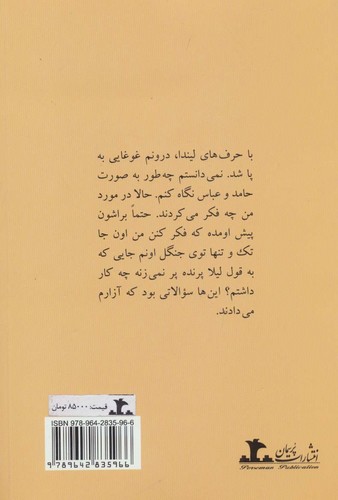 با حرف‌های لیندا، درونم غوغایی به
پا شد. نمی‌دانستم چه‌طور به صورت
حامد و عباس نگاه کنم. حالا در مورد
من چه فکر می‌کردند. حتماً براشون
پیش اومده که فکر کنن من اون جا
تک و تنها توی جنگل اونم جایی که
به قول لیلا پرنده پر نمی‌زنه چه کار
داشتم؟ این‌ها سؤالاتی بود که آزارم
می‌دادند.
قیمت: ۸۵۰۰۰ تومان
ISBN 978-964-2835-96-6
9789642835966
انتشارات پُرسمان
Porseman Publication